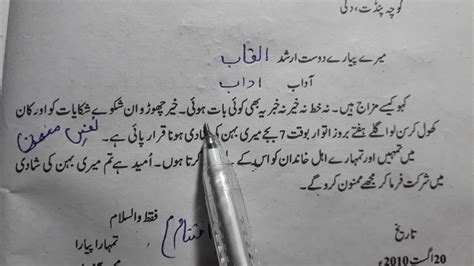 کوچہ پنڈت، دلی
میرے پیارے دوست ارشد القاب
آداب اداب
کہو کیسے مزاج ہیں۔ نہ خط نہ خیر نہ خبر یہ بھی کوئی بات ہوئی۔ خیر چھوڑو ان شکوے شکایات کو اور کان
کھول کر سن لو اگلے ہفتے بروز اتوار بوقت 7 بجے میری بہن کی شادی ہونا قرار پائی ہے۔ نفس مضمون
میں تمہیں اور تمہارے اہل خاندان کو اس کے کرتا ہوں۔ اُمید ہے تم میری بہن کی شادی
میں شرکت فرما کر مجھے ممنون کرو گے۔
فقط والسلام
تاریخ اختتام تمہارا پیارا
20 اگست 2010ء